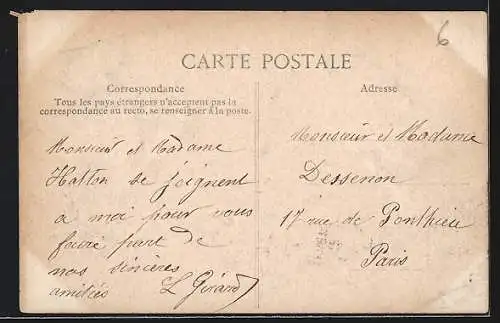 6
CARTE POSTALE
Correspondance
Tous les pays étrangers n'acceptent pas la
correspondance au recto, se renseigner à la poste.
Monsieur et Madame
Hatton se joignent
a moi pour vous
faire part de
nos sincères
amitiés L Girard
Adresse
Monsieur et Madame
Dessenon
17 rue de Ponthieu
Paris